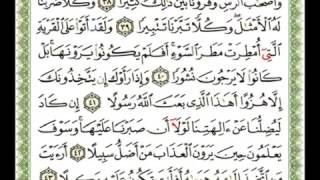 وَأَصْحَابَ الرَّسِّ وَقُرُونًا بَيْنَ ذَٰلِكَ كَثِيرًا ٣٨ وَكُلًّا ضَرَبْنَا
لَهُ الْأَمْثَالَ وَكُلًّا تَبَّرْنَا تَتْبِيرًا ٣٩ وَلَقَدْ أَتَوْا عَلَى الْقَرْيَةِ
الَّتِي أُمْطِرَتْ مَطَرَ السَّوْءِ أَفَلَمْ يَكُونُوا يَرَوْنَهَا بَلْ
كَانُوا لَا يَرْجُونَ نُشُورًا ٤٠ وَإِذَا رَأَوْكَ إِن يَتَّخِذُونَكَ
إِلَّا هُزُوًا أَهَٰذَا الَّذِي بَعَثَ اللَّهُ رَسُولًا ٤١ إِن كَادَ
لَيُضِلُّنَا عَنْ آلِهَتِنَا لَوْلَا أَن صَبَرْنَا عَلَيْهَا وَسَوْفَ
يَعْلَمُونَ حِينَ يَرَوْنَ الْعَذَابَ مَنْ أَضَلُّ سَبِيلًا ٤٢ أَرَأَيْتَ